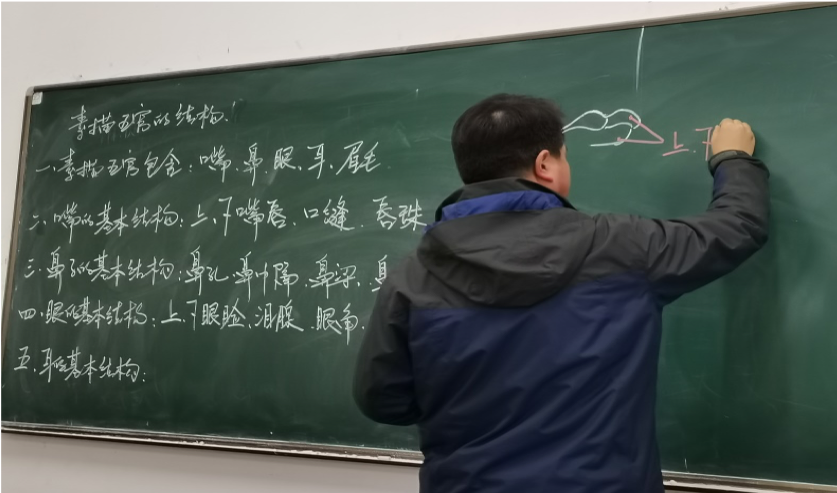 素描五官的结构
一、素描五官包含：嘴、鼻、眼、耳、眉毛
二、嘴的基本结构：上、下嘴唇、口缝、唇珠
三、鼻子的基本结构：鼻孔、鼻中隔、鼻梁、鼻
四、眼的基本结构：上、下眼睑、泪腺、眼角、
五、耳的基本结构：
上、下